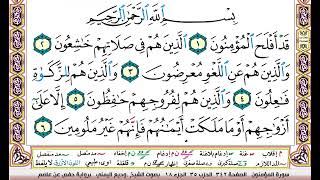 بِسْمِ اللَّهِ الرَّحْمَٰنِ الرَّحِيمِ
قَدْ أَفْلَحَ الْمُؤْمِنُونَ ١ الَّذِينَ هُمْ فِي صَلَاتِهِمْ خَاشِعُونَ ٢
وَالَّذِينَ هُمْ عَنِ اللَّغْوِ مُعْرِضُونَ ٣ وَالَّذِينَ هُمْ لِلزَّكَاةِ
فَاعِلُونَ ٤ وَالَّذِينَ هُمْ لِفُرُوجِهِمْ حَافِظُونَ ٥ إِلَّا عَلَىٰ
أَزْوَاجِهِمْ أَوْ مَا مَلَكَتْ أَيْمَانُهُمْ فَإِنَّهُمْ غَيْرُ مَلُومِينَ ٦
سورة المؤمنون الصفحة ٣٤٢ الجزء ١٨ بصوت الشيخ وديع اليمني برواية حفص عن عاصم